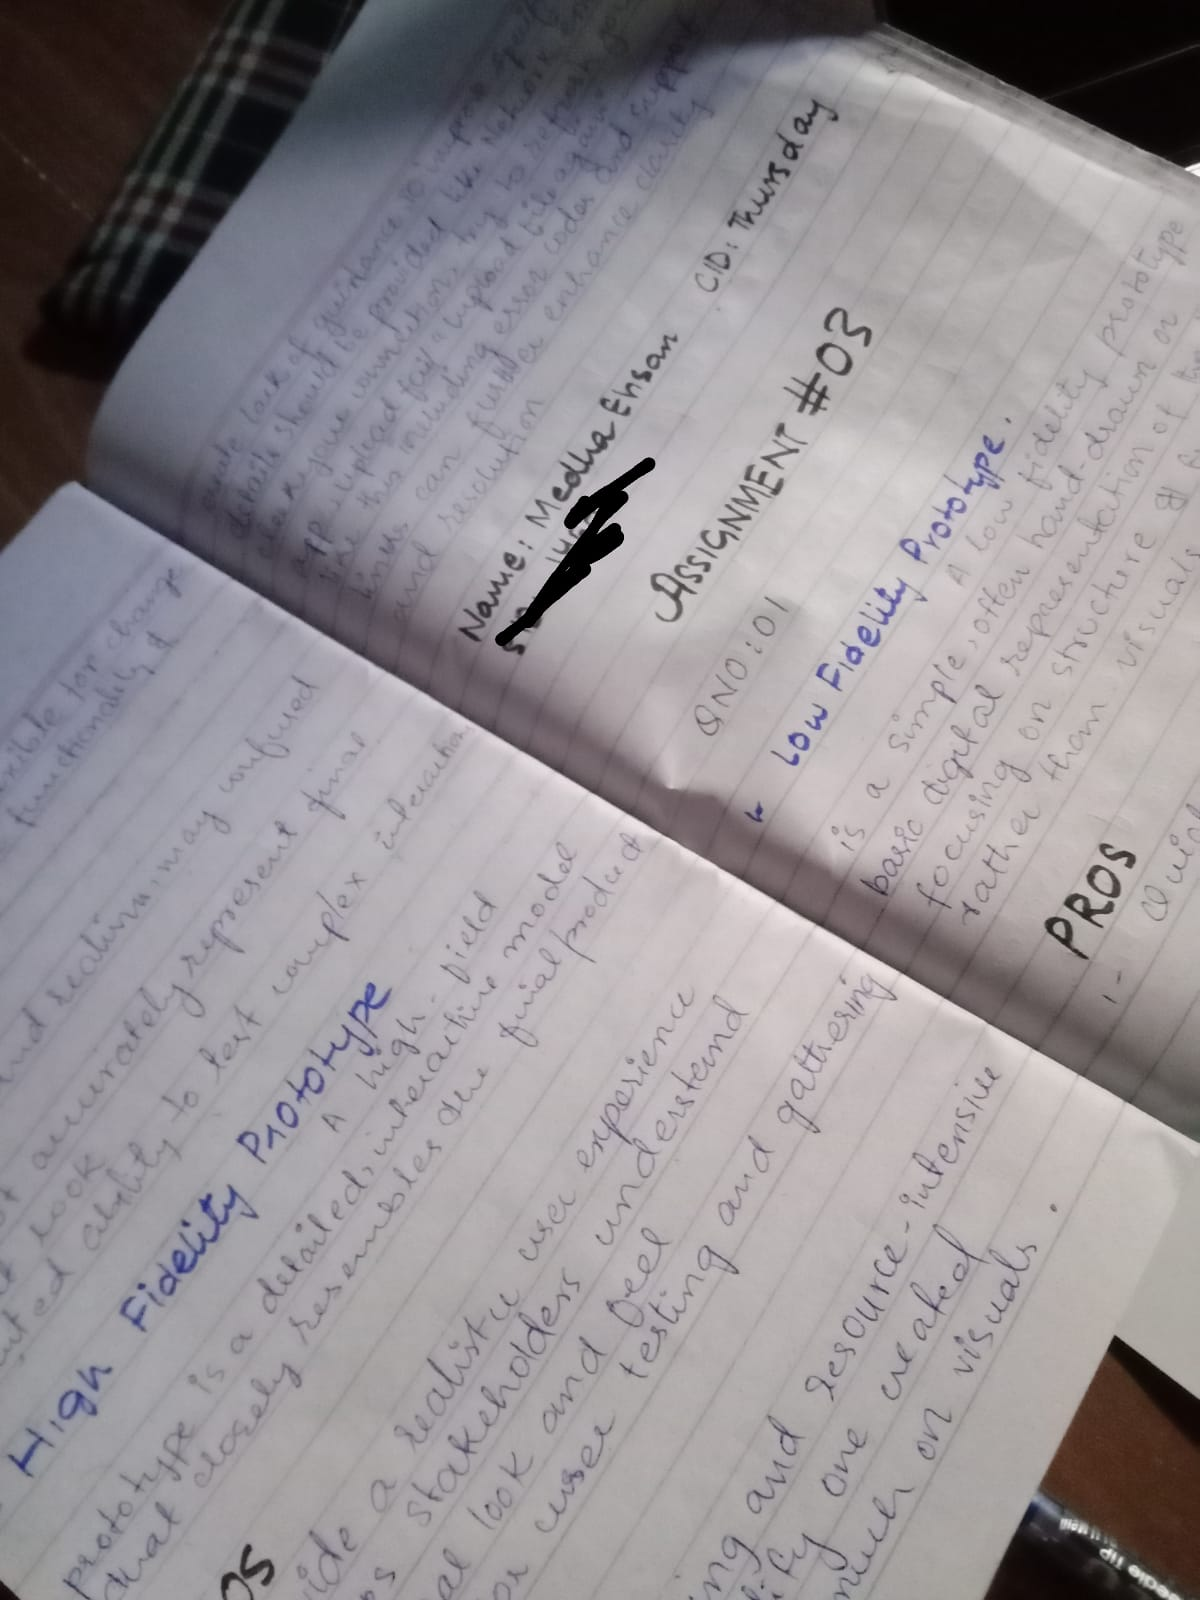 lack of guidance to improve
details should be provided like Network
your connection, try to
app upload for a upload file again
like this including error codes and support
links can further enhance clarity
and resolution
Name: Medha Ehsan CID: Thursday
ASSIGNMENT #03
QNO:01
Low Fidelity Prototype.
A low fidelity prototype
is a simple, often hand-drawn or
basic digital representation of
focusing on structure &
rather than visuals
PROS
1-
for change
functionality &
and realism, may confused
accurately represent final
look
ability to test complex interaction
High Fidelity Prototype
A high field
prototype is a detailed, interactive model
that closely resembles the final product
a realistic user experience
stakeholders understand
look and feel
user testing and gathering
and resource-intensive
one created
much on visuals.